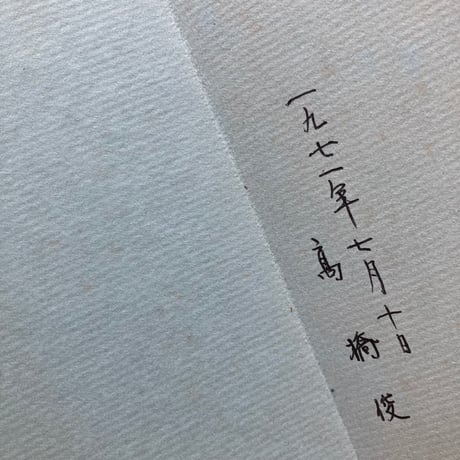 一九七一年七月十日
高橋俊